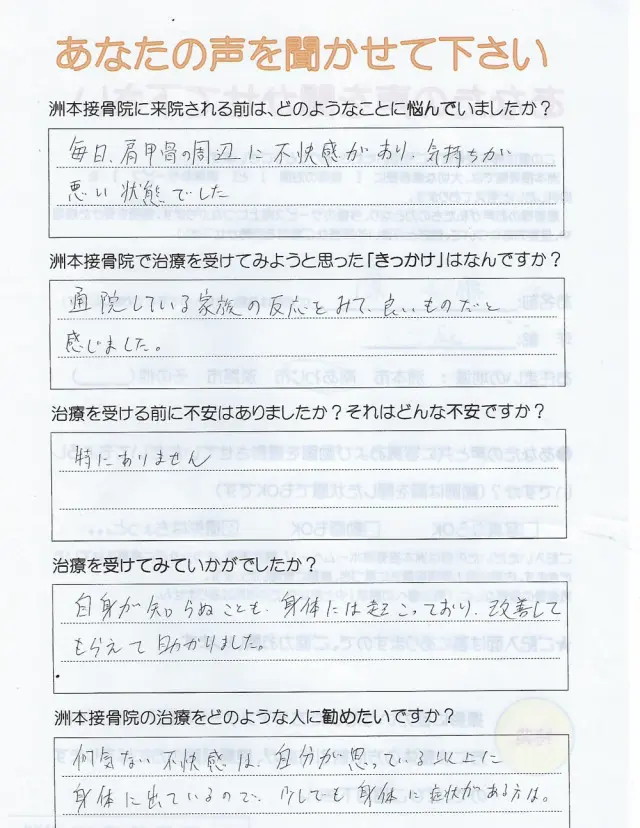 あなたの声を聞かせて下さい
洲本接骨院に来院される前は、どのようなことに悩んでいましたか？
毎日、肩甲骨の周辺に不快感があり、気持ちが
悪い状態でした
洲本接骨院で治療を受けてみようと思った「きっかけ」はなんですか？
通院している家族の反応をみて、良いものだと
感じました。
治療を受ける前に不安はありましたか？それはどんな不安ですか？
特にありません
治療を受けてみていかがでしたか？
自身が知らぬことも、身体には起こっており、改善して
もらえて助かりました。
洲本接骨院の治療をどのような人に勧めたいですか？
何気ない不快感は、自分が思っている以上に
身体に出ているので、少しでも身体に症状がある方は。